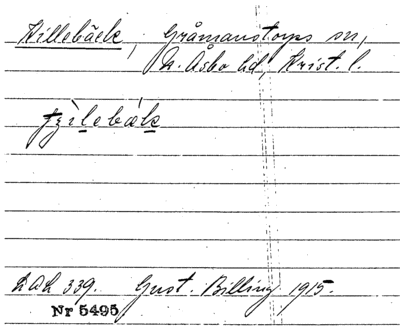 Killebäck, Gråmanstorps sn,
N. Åsbo hd, Krist. l.
LAL 339. Gust. Billing 1915.
Nr 5495